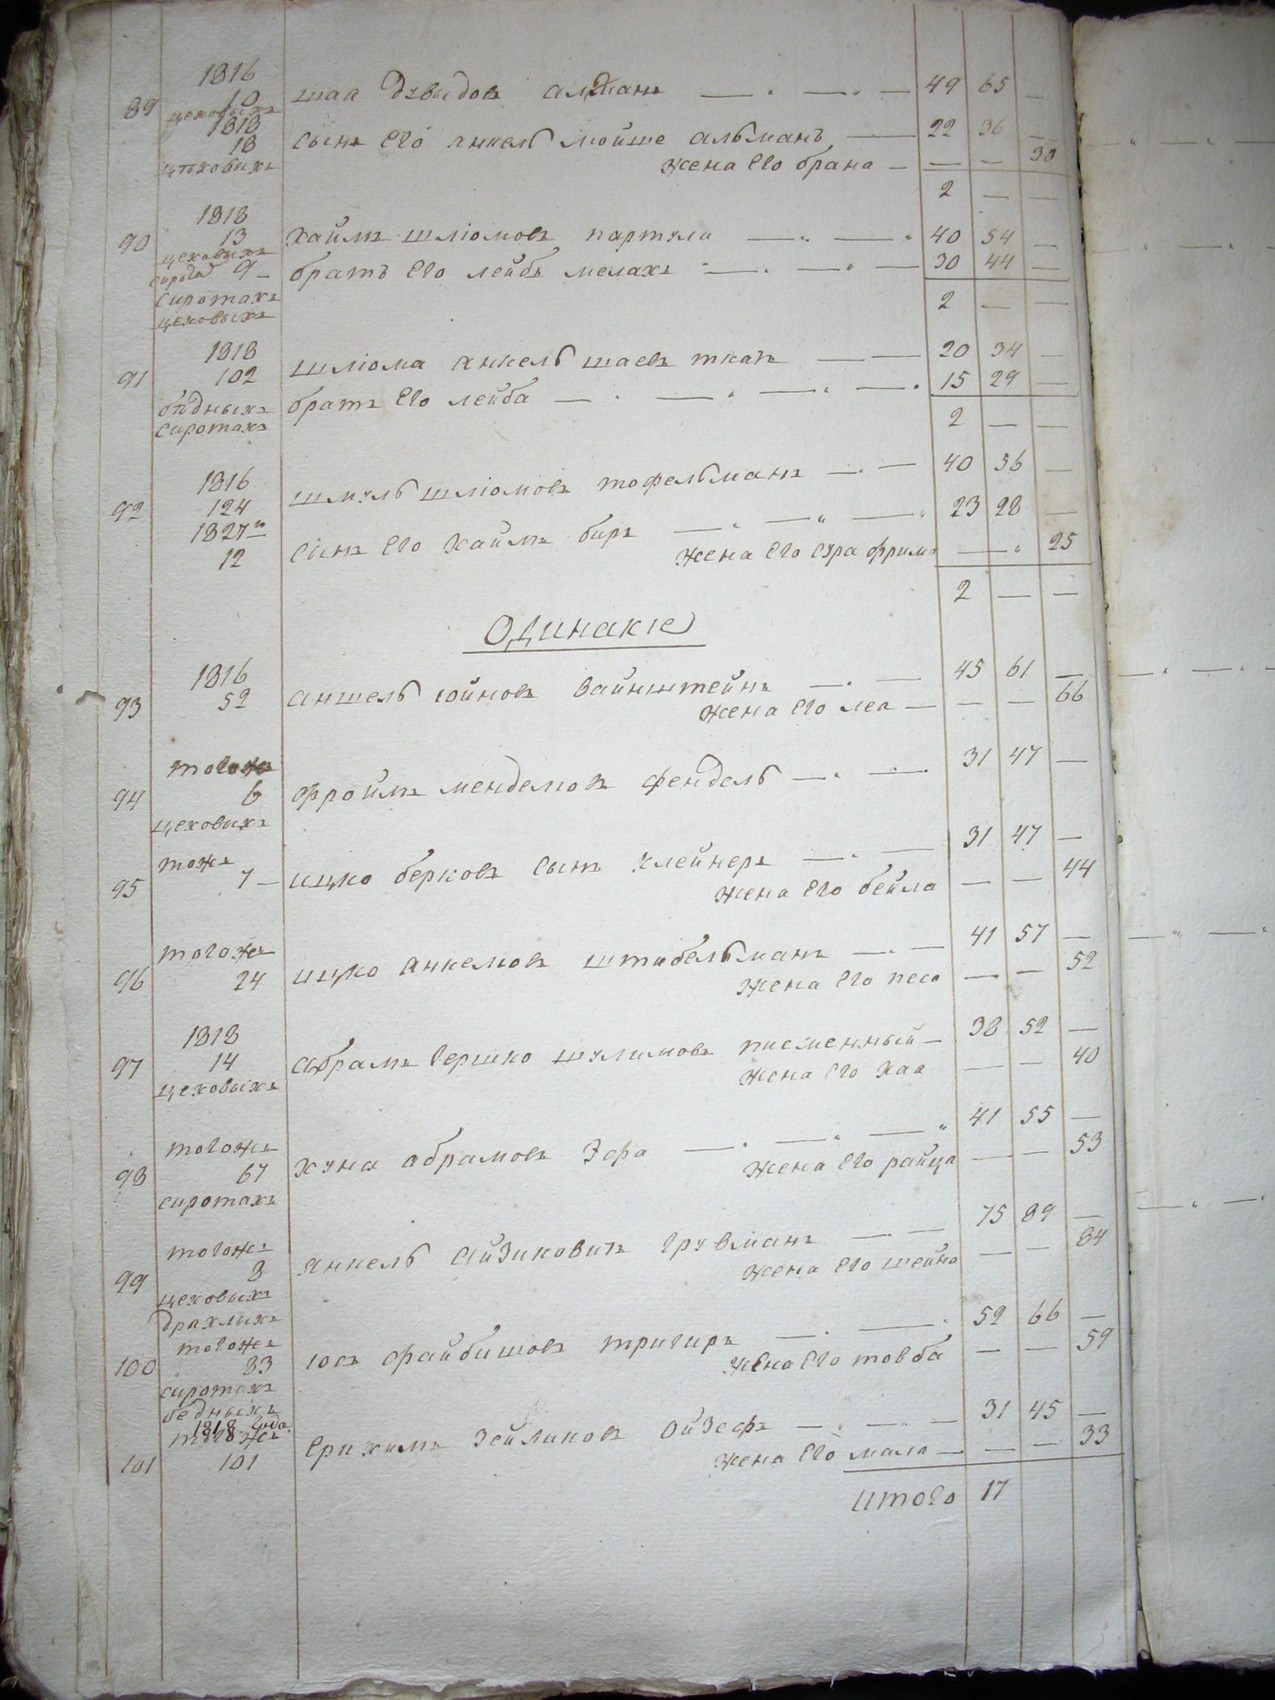 1816
89 10 шая Дувидовъ алтманъ 49 65 —
цеховыхъ
1818
18 сынъ его анкель мойше альманъ 22 36 —
цѣховыхъ жена его брана — — 30
2 — —
1818
90 13 хаймъ шліомовъ партули 40 54 —
цеховыхъ
9 братъ его лейбъ мелахъ 30 44 —
сиротахъ
цеховыхъ 2 — —
1818
91 102 шліома анкель шаевъ ткачъ 20 34 —
бѣдныхъ братъ его лейба 15 29 —
сиротахъ 2 — —
1816
92 124 шмуль шліомовъ тофельманъ 40 56 —
1827го
12 сынъ его хаймъ биръ 23 28 —
жена его сура фрима — — 25
2 — —
Одинакіе
1816
93 52 аншель іойновъ вайнштейнъ 45 61 —
жена его леа — — 66
тогожъ
94 6 фроимъ менделіовъ фендель 31 47 —
цеховыхъ
тожъ
95 7 — ицко берковъ сынъ клейнеръ 31 47 —
жена его бейла — — 44
тогожъ
96 24 ицко анкелювъ штибельманъ 41 57 —
жена его песа — — 52
1818
97 14 абрамъ гершко шулимовъ писменный 38 52 —
цеховыхъ жена его хаа — — 40
тогожъ
98 67 хуна абрамовъ Зафа 41 55 —
сиротахъ жена его райца — — 53
тогожъ
99 8 янкель айзиковичъ грувманъ 75 89 —
цеховыхъ жена его шейна — — 84
драхлыхъ
тогожъ
100 83 іосъ файбишовъ тригиръ 52 66 —
сиротахъ жена его товба — — 59
бедныхъ
1818 года
тогожъ
101 101 ерихимъ зейликовъ ойзефъ 31 45 —
жена его мала — — 33
итого 17